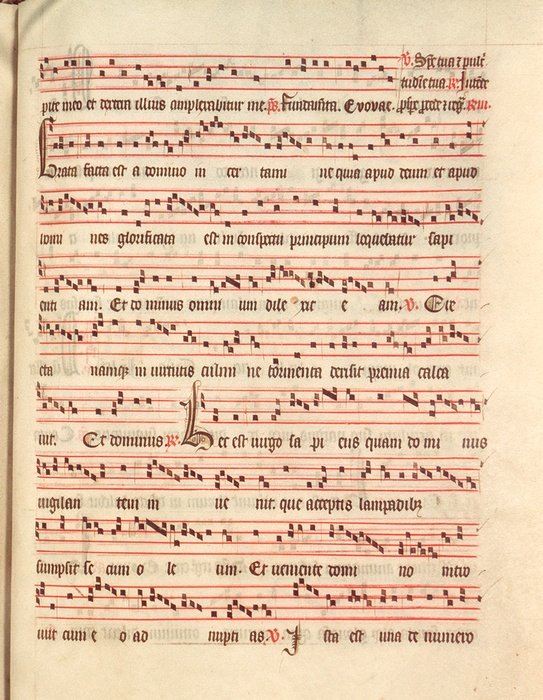 ℣. Spe tua ⁊ pulc
tudīe tua. ℟. Intēde
pite meo et dextera illius amplexabitur me. ps. Fundata. Evovae. pspe procede ⁊ reg.
Grata facta est a domino in cer tami ne quia apud deum et apud
homi nes glorificata est in conspectu principum loquebatur sapi
enti am. Et do minus omni um dile xit e am. ℣. Ele
cta namque in virtutis culmi ne tormenta derisit premia calca
uit. Et dominus ℟. Hec est uirgo sa pi ens quam do mi nus
uigilan tem in ue nit. que acceptis lampadibꝫ
sumpsit se cum o le um. Et ueniente domi no intro
iuit cum e o ad nupti as. ℣. Ista est una de numero